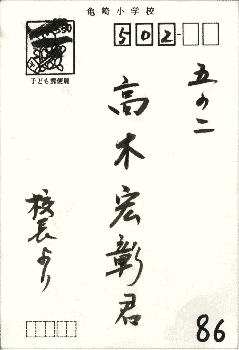 亀崎小学校
502-
子ども郵便局
五の二
高木宏彰君
校長より
86